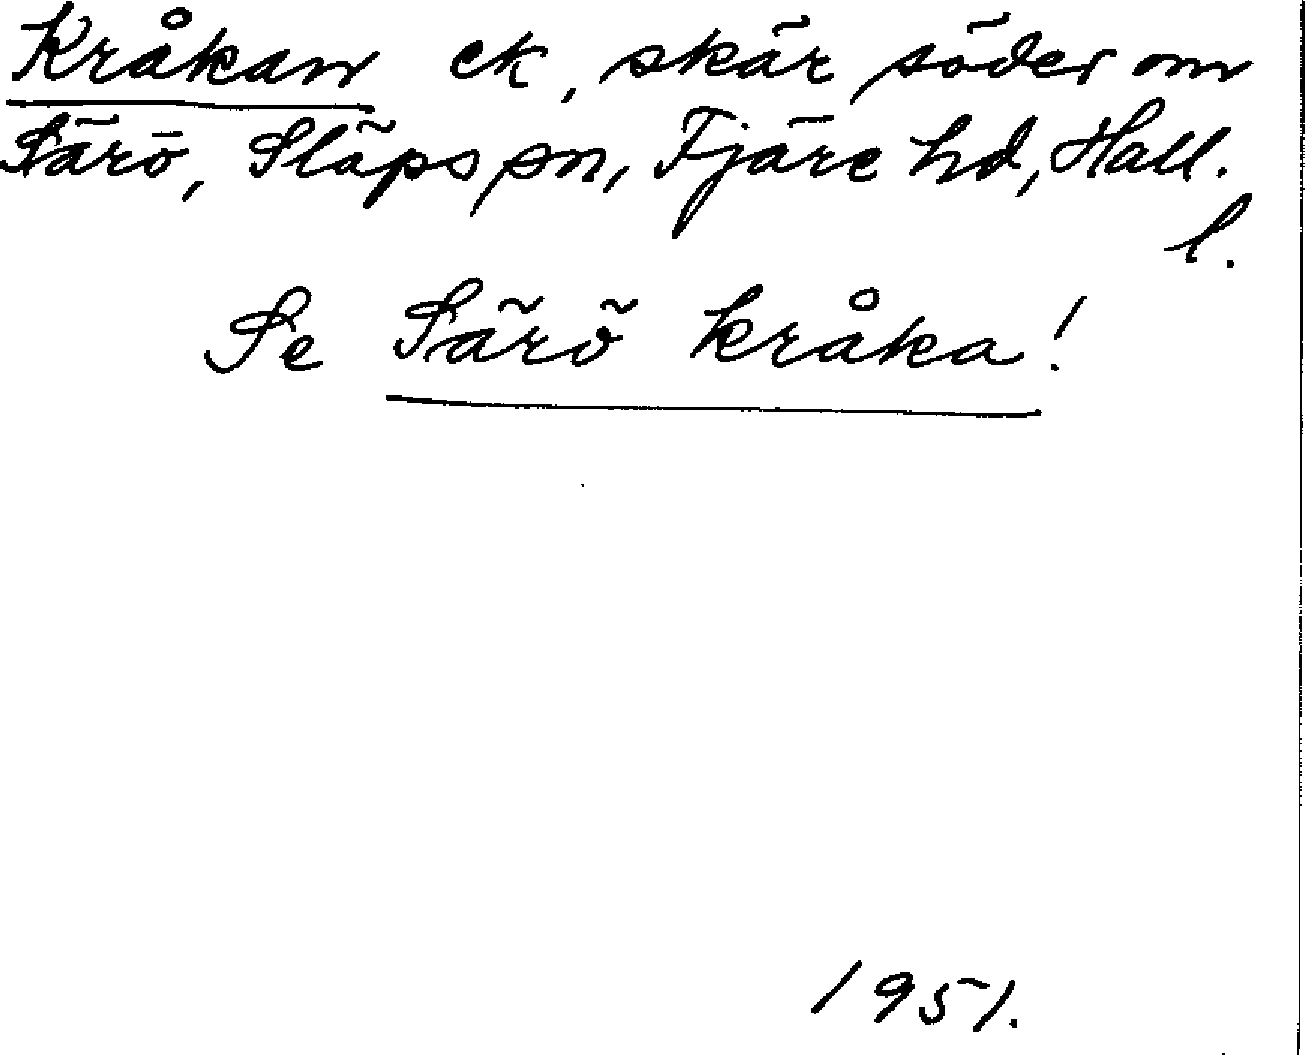 Kråkan ek, skär söder om
Särö, Släps sn, Fjäre hd, Hall.
l.
Se Särö kråka!
1951.